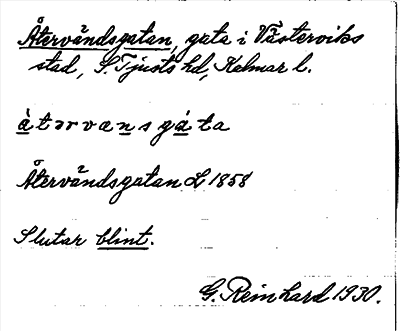 Återvändsgatan, gata i Västerviks
stad, S. Tjusts hd, Kalmar l.
åtərvansgata
Återvändsgatan L 1858
Slutar blint.
G. Reinhard 1930.